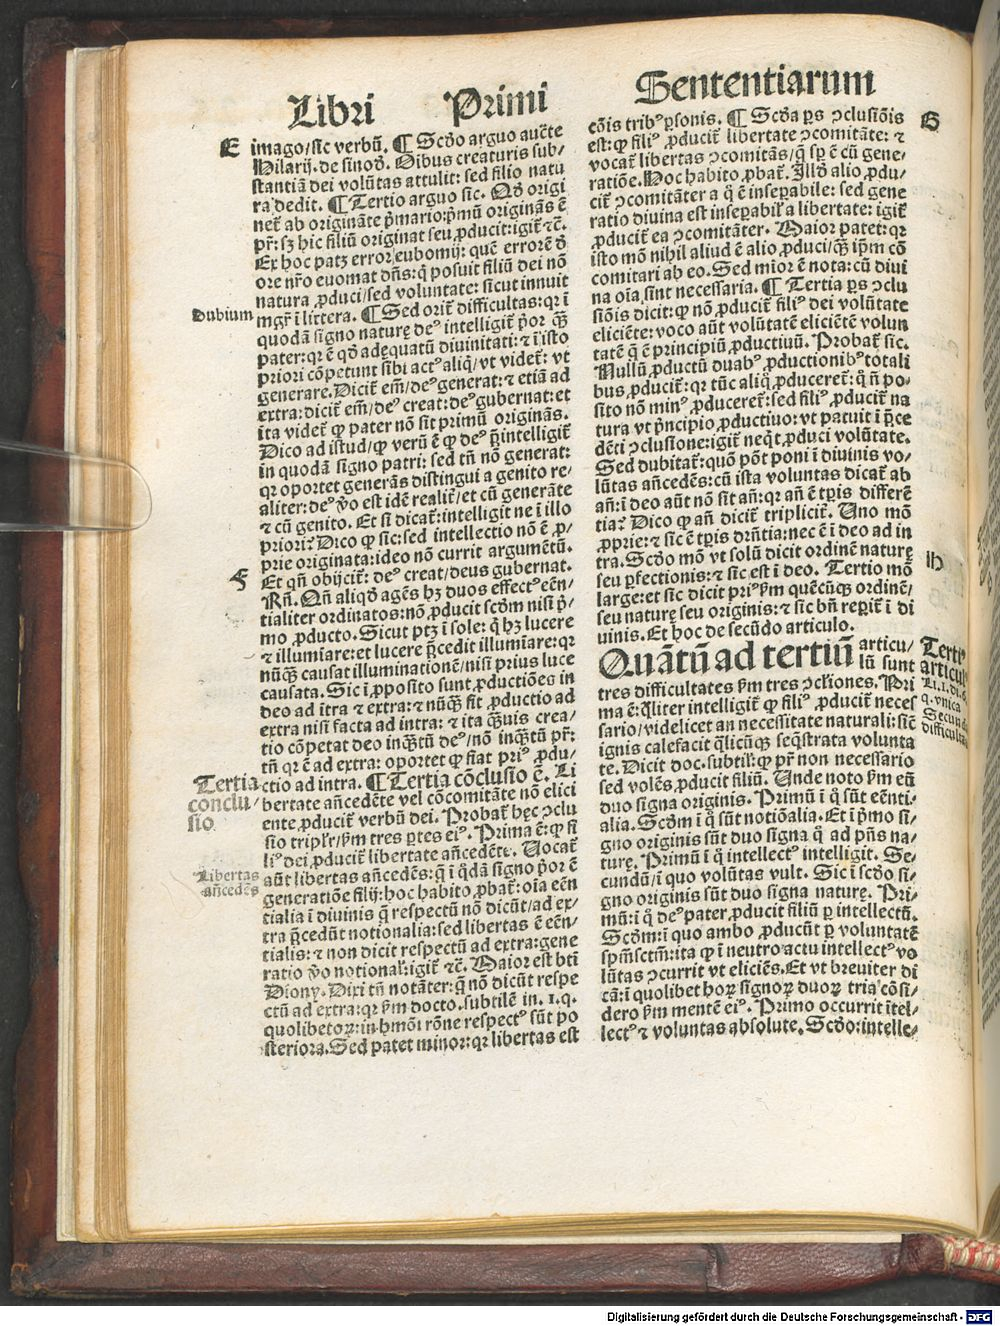 Libri Primi
Sententiarum
E
imago/sic verbũ. ¶ Scďo arguo auc̃te
Hilarij. de sinoď. Oibus creaturis sub-
stantiã dei volũtas attulit: sed filio natu
ra dedit. ¶ Tertio arguo sic. Qď origi
net᷑ ab originãte p̃mario: p̃mũ originãs ẽ
pr̃: sꝫ hic filiũ originat seu ꝓducit: igit᷑ ⁊c̃.
Ex hoc patꝫ error eubomij: quẽ errorẽ ď
ore nr̃o euomat dñs: q̃ posuit filiũ dei nõ
natura ꝓduci/sed voluntate: sicut innuit
Dubium
mgr̃ ĩ littera. ¶ Sed orit᷑ difficultas: qꝛ ĩ
quodã signo naturę deꝰ intelligit᷑ p̃or q̃ꝫ
pater: qꝛ ẽ qď adequatũ diuinitati: ⁊ ĩ isto
priori cõpetunt sibi actꝰ aliq̃/vt videt᷑: vt
generare. Dicit᷑ em̃/deꝰ generat: ⁊ etiã ad
extra: dicit᷑ em̃/deꝰ creat: deꝰ gubernat: et
ita videt᷑ ꝙ pater nõ sit primũ originãs.
Dico ad istud/ꝙ verũ ẽ ꝙ deꝰ p̃intelligit᷑
in quodã signo patri: sed tñ nõ generat:
qꝛ oportet generãs distingui a genito re-
aliter: deꝰ ṽo est idẽ realit᷑/et cũ generãte
⁊ cũ genito. Et si dicat᷑: intelligit ne ĩ illo
priori? Dico ꝙ sic: sed intellectio nõ ẽ ꝓ-
prie originata: ideo nõ currit argumẽtũ.
F
Et qñ obijcit᷑: deꝰ creat/deus gubernat.
Rñ. Qñ aliqď agẽs hꝫ duos effectꝰ eẽn-
tialiter ordinatos: nõ ꝓducit scďm nisi p̃-
mo ꝓducto. Sicut ptꝫ ĩ sole: q̃ hꝫ lucere
⁊ illumĩare: et lucere p̃cedit illumĩare: qꝛ
nũq̃ꝫ causat illuminationẽ/nisi prius luce
causata. Sic ĩ ꝓposito sunt ꝓductiões in
deo ad ĩtra ⁊ extra: ⁊ nũq̃ꝫ fit ꝓductio ad
extra nisi facta ad intra: ⁊ ita q̃ꝫuis crea/
tio cõpetat deo inq̃ꝫtũ deꝰ/nõ inq̃ꝫtũ pr̃:
tñ qꝛ ẽ ad extra: oportet ꝙ fiat priꝰ ꝓdu/
Tertia
conclu/
sio.
ctio ad intra. ¶ Tertia cõclusio ẽ. Li
bertate añcedẽte vel cõcomitãte nõ elici
ente ꝓducit᷑ verbũ dei. Probat᷑ hęc ꝯclu
sio triplr̃/ẜm tres ꝑtes eiꝰ. Prima ẽ: ꝙ fi
liꝰ dei ꝓducit᷑ libertate añcedẽte. Vocat᷑
Libertas
añcedẽs
aũt libertas añcedẽs: q̃ ĩ q̃dã signo p̃or ẽ
generatiõe filij: hoc habito ꝓbat᷑: oĩa eẽn
tialia ĩ diuinis q̃ respectũ nõ dicũt/ad ex-
tra p̃cedũt notionalia: sed libertas ẽ eẽn-
tialis: ⁊ non dicit respectũ ad extra: gene
ratio ṽo notional᷑: igit᷑ ⁊c̃. Maior est bt̃i
Diony. Dixi tñ notãter: q̃ nõ dicũt respe
ctũ ad extra: qꝛ ẜm docto. subtilẽ in. 1. q.
quolibetoꝝ: in hmõi rõne respectꝰ sũt po
steriora. Sed patet minor: qꝛ libertas est
cõis tribꝰ ꝑsonis. ¶ Scďa ꝑs ꝯclusiõis
G
est: ꝙ filiꝰ ꝓducit᷑ libertate ꝯcomitãte: ⁊
vocat᷑ libertas ꝯcomitãs/q̃ sp̃ ẽ cũ gene-
ratiõe. Hoc habito ꝓbat᷑. Illď alio ꝓdu/
cit᷑ ꝯcomitãter a q̃ ẽ insepabile: sed gene
ratio diuina est insepabil᷑ a libertate: igit᷑
ꝓducit᷑ ea ꝯcomitãter. Maior patet: qꝛ
isto mõ nihil aliud ẽ alio ꝓduci/q̃ꝫ ip̃m cõ
comitari ab eo. Sed mior ẽ nota: cũ diui
na oĩa sint necessaria. ¶ Tertia ꝑs ꝯclu
siõis dicit: ꝙ nõ ꝓducit᷑ filiꝰ dei volũtate
eliciẽte: voco aũt volũtatẽ eliciẽtẽ volun
tatẽ q̃ ẽ principiũ ꝓductiuũ. Probat᷑ sic.
Nullũ ꝓductũ duabꝰ ꝓductionibꝰ totali
bus ꝓducit᷑: qꝛ tũc aliq̃ ꝓduceret᷑: q̃ ñ po-
sito nõ minꝰ ꝓduceret᷑: sed filiꝰ ꝓducit᷑ na
tura vt p̃ncipio ꝓductiuo: vt patuit ĩ p̃ce
dẽti ꝯclusione: igit᷑ neq̃t ꝓduci volũtate.
Sed dubitat᷑: quõ põt poni ĩ diuinis vo-
lũtas añcedẽs: cũ ista voluntas dicat᷑ ab
añ: ĩ deo aũt nõ sit añ: qꝛ añ ẽ tp̃is differẽ
tia? Dico ꝙ añ dicit᷑ triplicit᷑. Uno mõ
ꝓprie: ⁊ sic ẽ tp̃is dr̃ñtia: nec ẽ ĩ deo ad in
H
tra. Scďo mõ vt solũ dicit ordinẽ naturę
seu ꝑfectionis: ⁊ sic est ĩ deo. Tertio mõ
large: et sic dicit priꝰ ẜm quẽcũqꝫ ordinẽ/
seu naturę seu originis: ⁊ sic bñ reꝑit᷑ ĩ di
uinis. Et hoc de secũdo articulo.
Quãtũ ad tertiũ articu/
lũ sunt
Tertiꝰ
articulꝰ
tres difficultates ẜm tres ꝯclĩones. Pri
ma ẽ: q̃liter intelligit᷑ ꝙ filiꝰ ꝓducit᷑ neces
sario/videlicet an necessitate naturali: sic̃
ignis calefacit q̃licũqꝫ seq̃strata volunta
Secunda
difficultas
te. Dicit doc. subtil᷑: ꝙ pr̃ non necessario
sed volẽs ꝓducit filiũ. Unde noto ẜm eũ
duo signa originis. Primũ ĩ q̃ sũt eẽnti-
alia. Scďm ĩ q̃ sũt notiõalia. Et ĩ p̃mo si-
gno originis sũt duo signa q̃ ad pñs na-
turę. Primũ ĩ q̃ intellectꝰ intelligit. Se-
cundũ/ĩ quo volũtas vult. Sic ĩ scďo si-
gno originis sũt duo signa naturę. Pri-
mũ: ĩ q̃ deꝰ pater ꝓducit filiũ ꝑ intellectũ.
Scďm: ĩ quo ambo ꝓducũt ꝑ voluntatẽ
sp̃m̃sctm̃: ita ꝙ ĩ neutro actu intellectꝰ vo
lũtas ꝯcurrit vt eliciẽs. Et vt breuiter di
cã: ĩ quolibet hoꝝ signoꝝ duoꝝ tria cõsi-
dero ẜm mentẽ eiꝰ. Primo occurrit ĩtel-
lectꝰ ⁊ voluntas absolute. Scďo: intelle-
Digitalisierung gefördert durch die Deutsche Forschungsgemeinschaft - DFG